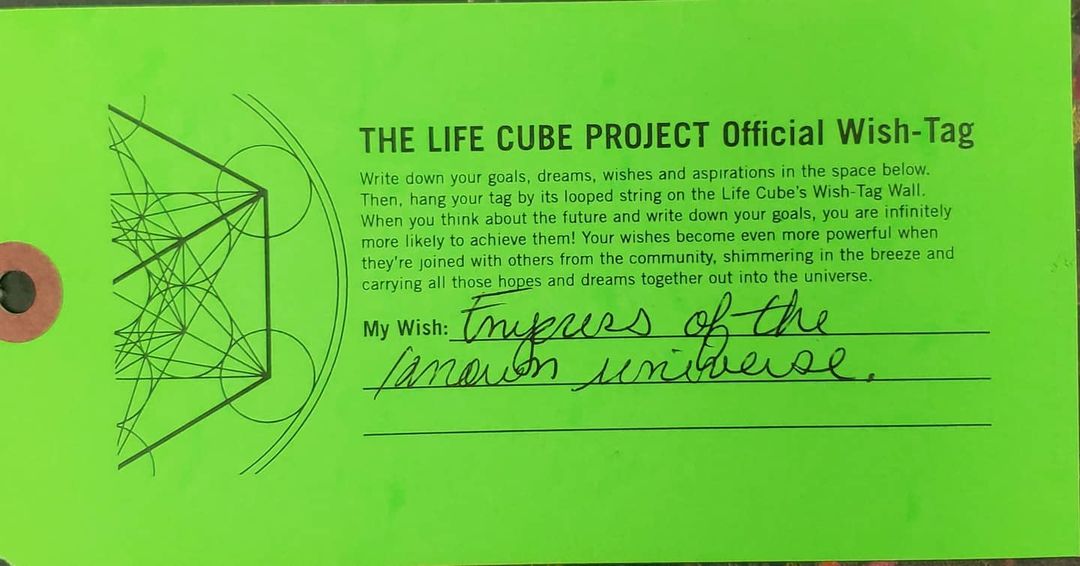 THE LIFE CUBE PROJECT Official Wish-Tag
Write down your goals, dreams, wishes and aspirations in the space below.
Then, hang your tag by its looped string on the Life Cube's Wish-Tag Wall.
When you think about the future and write down your goals, you are infinitely
more likely to achieve them! Your wishes become even more powerful when
they're joined with others from the community, shimmering in the breeze and
carrying all those hopes and dreams together out into the universe.
My Wish: Empress of the
known universe.